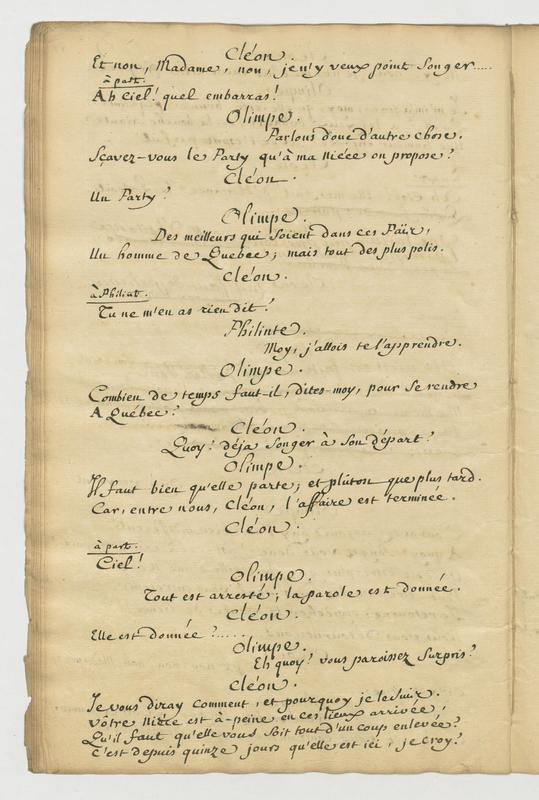 Cléon.
Et non, Madame, non, je n'y veux point songer.....
à part.
Ah Ciel! quel embarras!
Olimpe.
Parlons donc d'autre chose.
Sçavez-vous le Party qu'à ma niéce on propose?
Cléon.
Un Party?
Olimpe.
Des meilleurs qui soient dans ces Païs,
Un homme de Quebec; mais tout des plus polis.
Cléon.
à Philint.
Tu ne m'en as rien dit!
Philinte.
Moy, j'allois te l'apprendre.
Olimpe.
Combien de temps faut-il, dites-moy, pour se rendre
A Québec?
Cléon.
Quoy! déja songer à son départ?
Olimpe.
Il faut bien qu'elle parte; et plûtost que plus tard.
Car, entre nous, Cléon, l'affaire est terminée.
Cléon.
à part.
Ciel!
Olimpe.
Tout est arresté; la parole est donnée.
Cléon.
Elle est donnée?.....
Olimpe.
Eh quoy! vous paroissez surpris?
Cléon.
Je vous diray comment, et pourquoy je le suis.
vôtre niéce est à-peine en ces lieux arrivée,
Qu'il faut qu'elle vous soit tout d'un coup enlevée?
C'est depuis quinze jours qu'elle est ici, je croy?